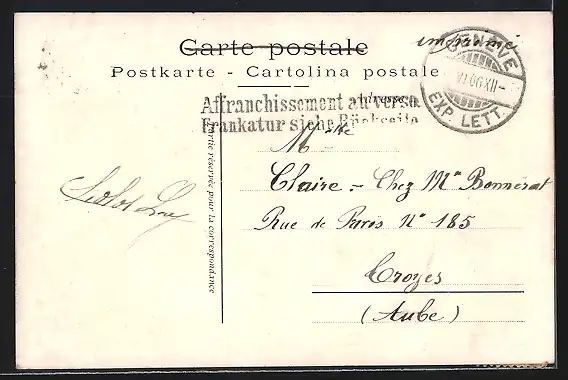 Carte postale
imprimé
Postkarte - Cartolina postale
Adresse
Affranchissement au verso
Frankatur siehe Rückseite
GENÈVE
VI 06 XII -
EXP. LETT.
Partie réservée pour la correspondance
Mlle
Claire - Chez Mme Bonnerat
Rue de Paris No 185
Troyes
(Aube)